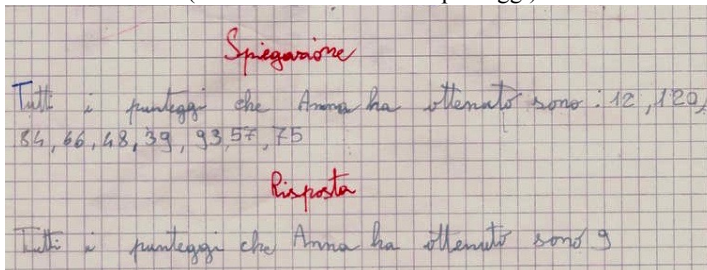 Spiegazione
Tutti i punteggi che Anna ha ottenuto sono : 12, 120,
84, 66, 48, 39, 93, 57, 75
Risposta
Tutti i punteggi che Anna ha ottenuto sono 9